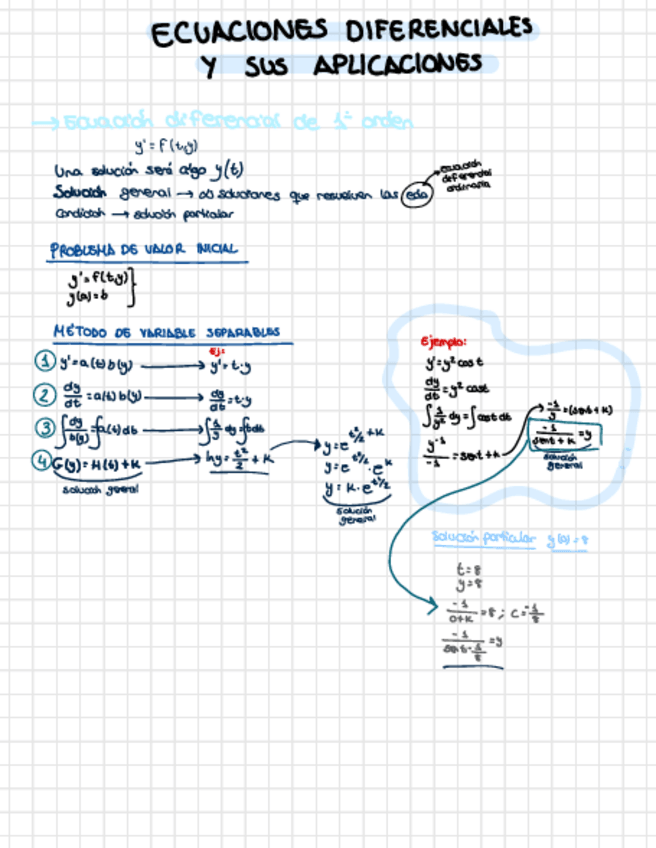 ECUACIONES DIFERENCIALES
Y SUS APLICACIONES
→ Ecuación diferencial de 1º orden
y' = f(t,y)
Una solución será algo y(t)
Solución general → soluciones que resuelven las edo
ecuación diferencial ordinaria
Condición → solución particular
PROBLEMA DE VALOR INICIAL
y' = f(t,y)
y(a) = b
MÉTODO DE VARIABLE SEPARABLES
Ej:
① y' = a(t) b(y) → y' = t·y
② dy/dt = a(t) b(y) → dy/dt = t·y
③ ∫ dy/b(y) = ∫ a(t) dt → ∫ 1/y dy = ∫ t dt
④ G(y) = H(t) + K → ln y = t²/2 + K
solución general
y = e^(t²/2 + K)
y = e^(t²/2) · e^K
y = K · e^(t²/2)
solución general
Ejemplo:
y' = y² cos t
dy/dt = y² cos t
∫ 1/y² dy = ∫ cos t dt
y⁻¹/-1 = sen t + K
-1/y = (sen t + K)
-1/(sen t + K) = y
solución general
Solución particular y(0) = 8
t = 8
y = 8
-1/(0+K) = 8 ; C = -1/8
-1/(sen t - 1/8) = y